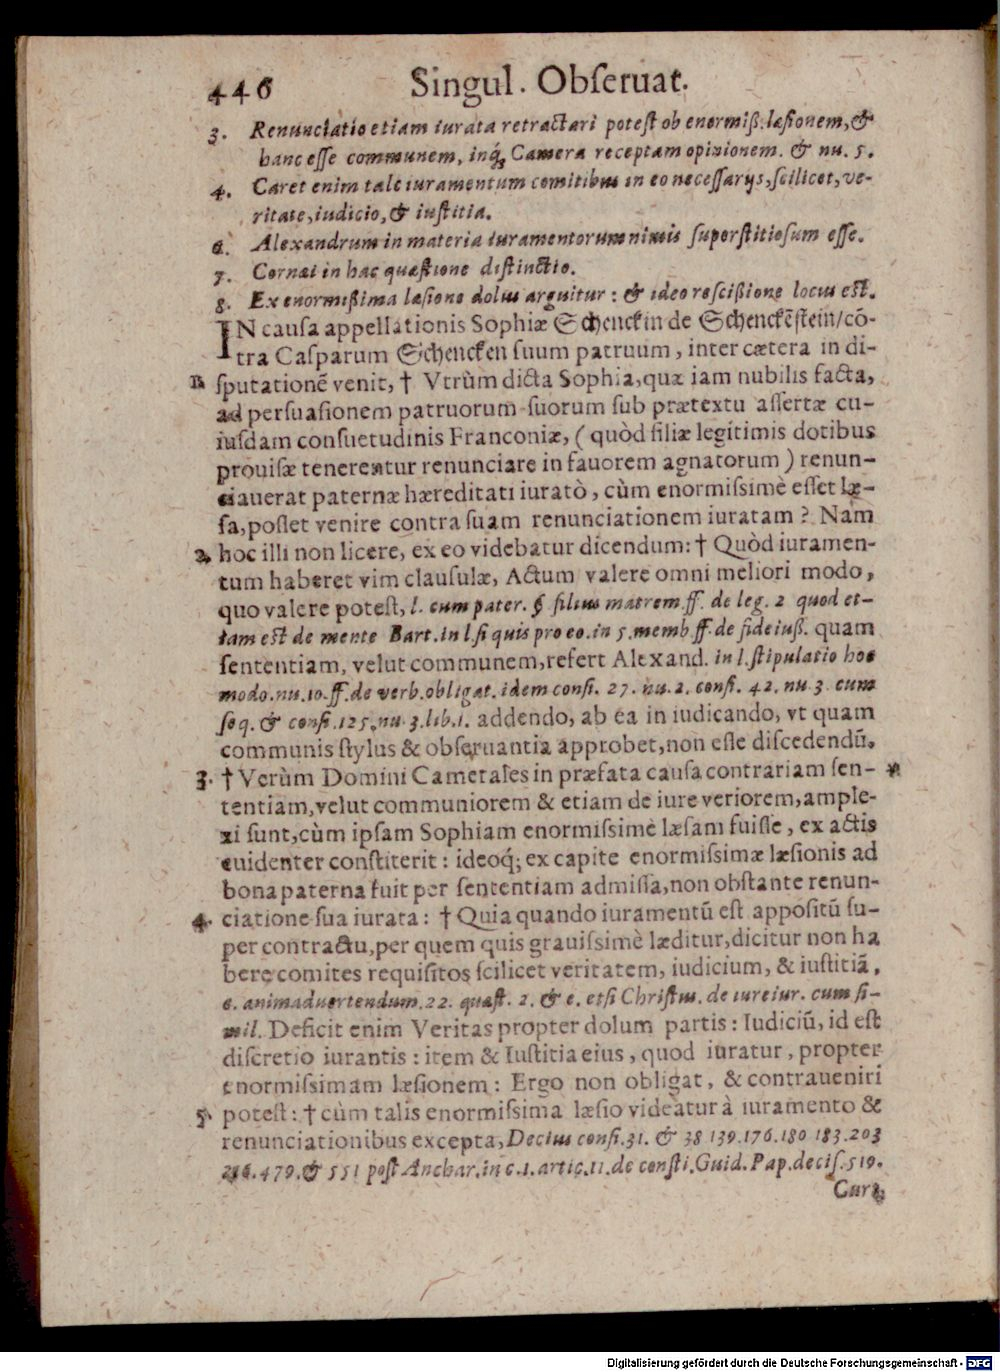 446 Singul. Obſeruat.
3. Renunciatio etiam iurata retractari poteſt ob enormiß. læſionem, &
hanc eſſe communem, inq́; Camera receptam opinionem. & nu. 5.
4. Caret enim tale iuramentum comitibus in eo neceſſarijs, ſcilicet, ve-
ritate, iudicio, & iuſtitia.
6. Alexandrum in materia iuramentorum nimis ſuperſtitioſum eſſe.
7. Cornæi in hac quæſtione diſtinctio.
8. Ex enormißima læſione dolus arguitur: & ideo reſcißione locus eſt.
IN cauſa appellationis Sophiæ Schenckin de Schenckēſtein/cō-
tra Caſparum Schencken ſuum patruum, inter cætera in di-
ſputationē venit, † Vtrùm dicta Sophia, quæ iam nubilis facta,
ad perſuaſionem patruorum ſuorum ſub prætextu aſſertæ cu-
iuſdam conſuetudinis Franconiæ, ( quòd filiæ legitimis dotibus
prouiſæ tenerentur renunciare in fauorem agnatorum ) renun-
ciauerat paternæ hæreditati iuratò, cùm enormiſsimè eſſet læ-
ſa, poſſet venire contra ſuam renunciationem iuratam? Nam
2. hoc illi non licere, ex eo videbatur dicendum: † Quòd iuramen-
tum haberet vim clauſulæ, Actum valere omni meliori modo,
quo valere poteſt, l. cum pater. § filius matrem. ff. de leg. 2 quod et-
iam eſt de mente Bart. in l. ſi quis pro eo. in 5. memb. ff. de fideiuß. quam
ſententiam, velut communem, refert Alexand. in l. ſtipulatio hoc
modo. nu. 10. ff. de verb. obligat. idem conſi. 27. nu. 2. conſi. 42. nu. 3. cum
ſeq. & conſi. 125. nu. 3. lib. 1. addendo, ab ea in iudicando, vt quam
communis ſtylus & obſeruantia approbet, non eſſe diſcedendū.
3. † Verùm Domini Camerales in præfata cauſa contrariam ſen-
tentiam, velut communiorem & etiam de iure veriorem, ample-
xi ſunt, cùm ipſam Sophiam enormiſsimè læſam fuiſſe, ex actis
euidenter conſtiterit: ideoq́; ex capite enormiſsimæ læſionis ad
bona paterna fuit per ſententiam admiſſa, non obſtante renun-
4. ciatione ſua iurata: † Quia quando iuramentū eſt appoſitū ſu-
per contractu, per quem quis grauiſsimè læditur, dicitur non ha
bere comites requiſitos ſcilicet veritatem, iudicium, & iuſtitiā.
c. animaduertendum. 22. quæſt. 2. & c. etſi Chriſtus. de iureiur. cum ſi-
mil. Deficit enim Veritas propter dolum partis: Iudiciū, id eſt
diſcretio iurantis: item & Iuſtitia eius, quod iuratur, propter
enormiſsimam læſionem: Ergo non obligat, & contraueniri
5. poteſt: † cùm talis enormiſsima læſio videatur à iuramento &
renunciationibus excepta, Decius conſi. 31. & 38 139. 176. 180 183. 203
216. 479. & 551 poſt Anchar. in c. 1. artic. 11. de conſti. Guid. Pap. deciſ. 519.
Digitalisierung gefördert durch die Deutsche Forschungsgemeinschaft - DFG